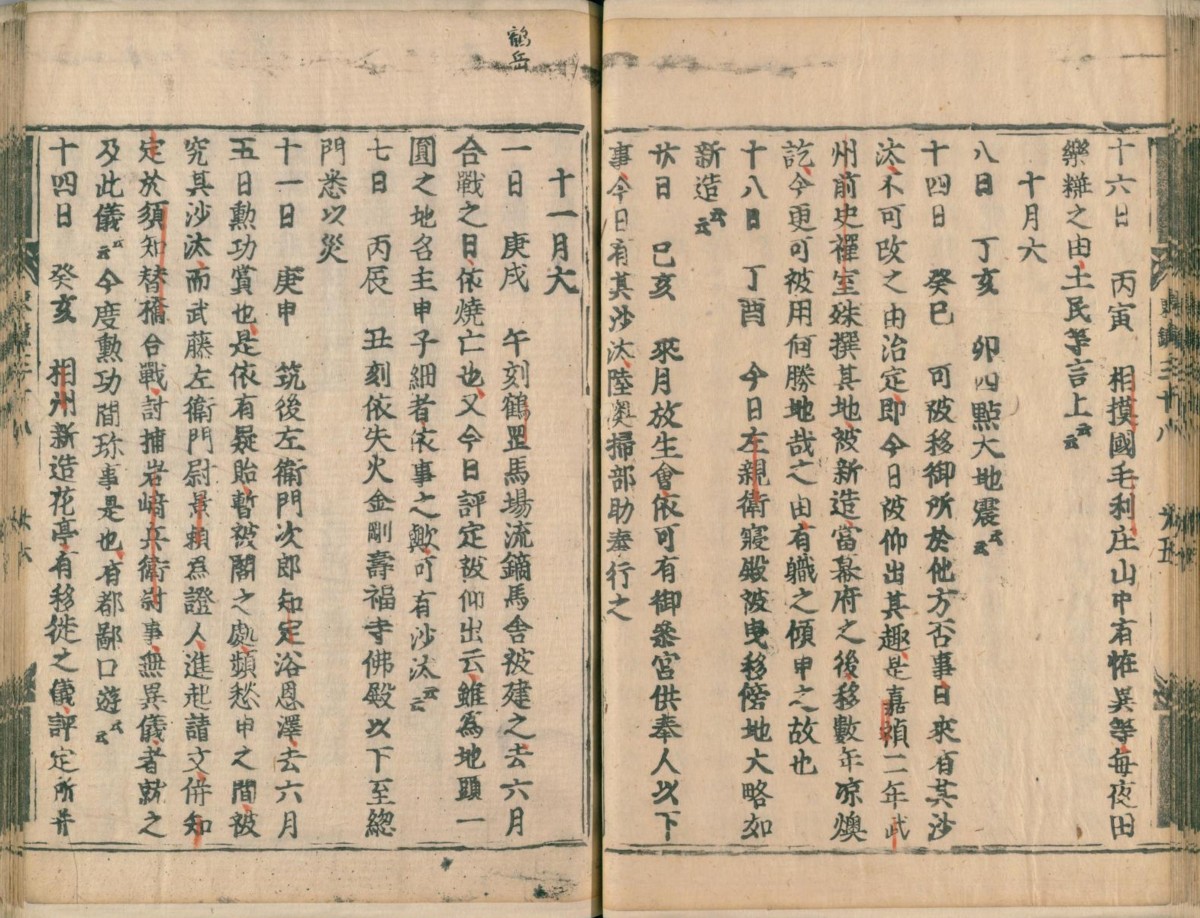 十六日　丙寅　相摸國毛利庄山中有恠異等每夜田
樂粧之由土民等言上云云
十月大
八日　丁亥　卯四點大地震云云
十四日　癸巳　可被移御所於他方否事日來有其沙
汰不可改之由治定即今日被仰出其趣是嘉禎二年武
州前史禪室殊撰其地被新造當幕府之後移數年凉燠
訖今更可被用何勝地哉之由有職之傾申之故也
十八日　丁酉　今日左親衛寢殿被曳移傍地大略如
新造云云
廿日　己亥　來月放生會依可有御參宮供奉人以下
事今日有其沙汰陸奧掃部助奉行之
鶴岳
十一月大
一日　庚戌　午刻鶴罡馬場流鏑馬舎被建之去六月
合戰之日依燒亡也又今日評定被仰出云雖爲地頭一
圓之地名主申子細者依事之歟可有沙汰云云
七日　丙辰　丑刻依失火金剛壽福寺佛殿以下至総
門悉以災
十一日　庚申　筑後左衛門次郎知定浴恩澤去六月
五日勳功賞也是依有疑貽暫被閣之處頻愁申之間被
究其沙汰而武藤左衛門尉景頼爲證人進起請文併知
定於須知替橋合戰討捕岩﨑兵衛尉事無異儀者就之
及此儀云云今度勳功間珎事是也有都鄙口遊云云
十四日　癸亥　相州新造花亭有移徙之儀評定所并